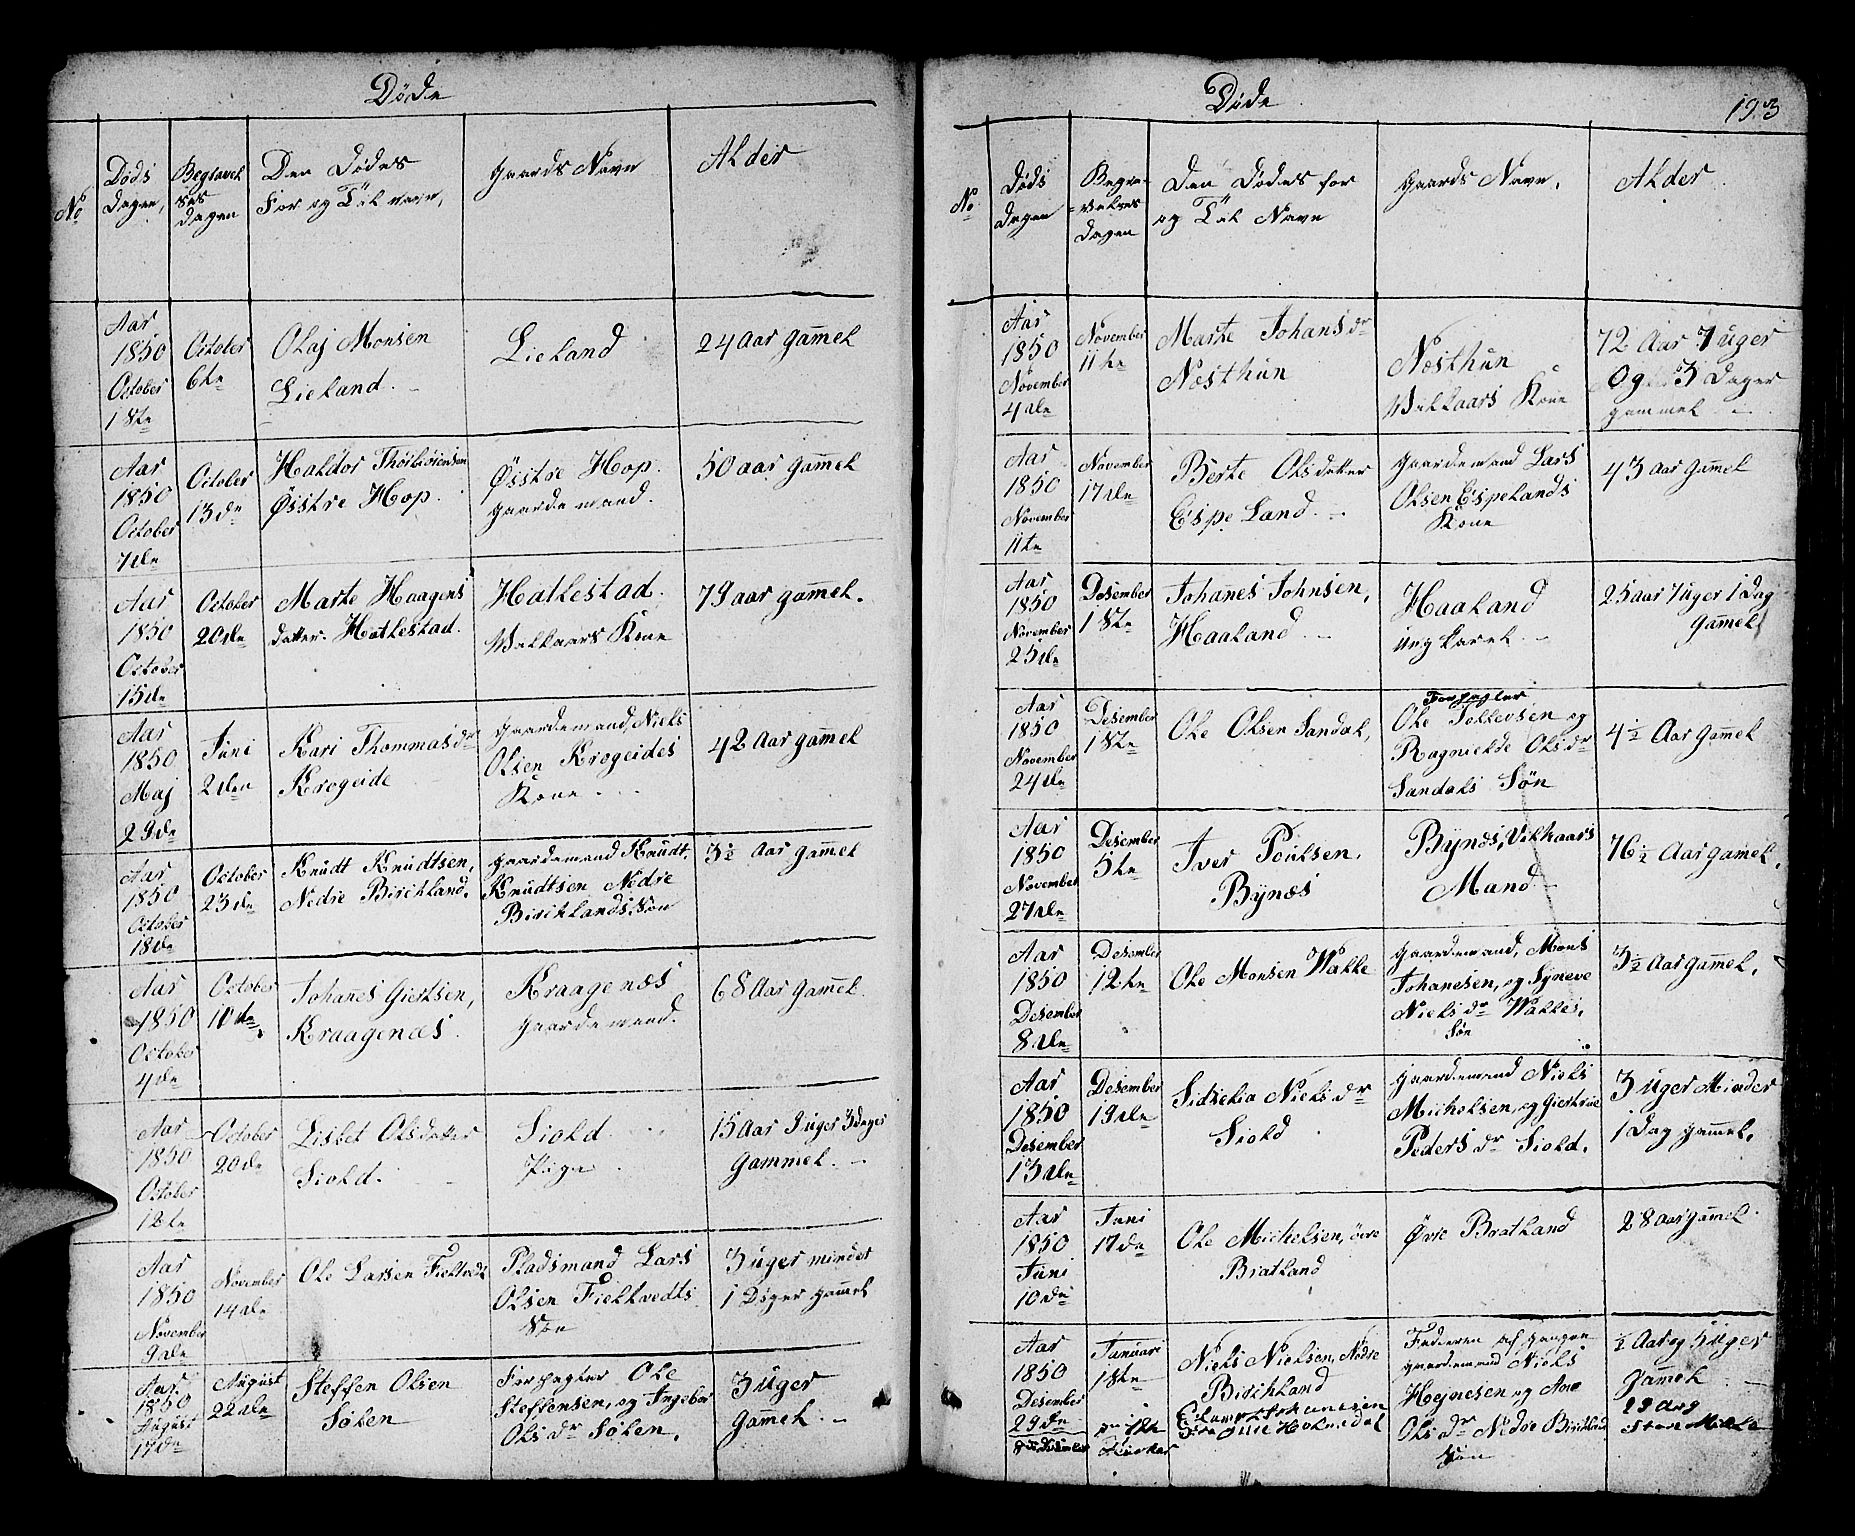 Døde
No
Døds
Dagen,
Begravel
ses
Dagen
Den Dødes
For og Til navn,
Gaards Navn
Alder
Aar
1850
October
1ste
October
6te
Olaj Monsen
Lieland.
Lieland
24 Aar gam̄el
Aar
1850
October
7de
October
13de
Haldor Thorbiörensen
Øsstre Hop.
Øsstre Hop.
Gaardemand.
50 aar gam̄el
Aar
1850
October
15de
October
20de
Marte Haagens
datter. Hatlestad.
Hatlestad.
Vilkaars Kone
79 aar gam̄el.
Aar
1850
Maj
29de
Juni
2den
Kari Thommasdr
Krogeide
Gaardemand, Niels
Olsen Krogeides
Kone
42 Aar gam̄el
Aar
1850
October
18de
October
23de
Knudt Knudtsen,
Nedre Birchland.
Gaardemand Knudt
Knudtsen Nedre
Birchlands Søn
3½ Aar gam̄el
Aar
1850
October
4de
October
10de
Johanes Giertsen,
Kraagenæs.
Kraagenæs
Gaardemand.
68 Aar gam̄el.
Aar
1850
October
12te
October
20de
Lisbet Olsdatter
Siold.
Siold
Pige
15 Aar 3 uger 3 dager
Gammel.
Aar
1850
November
9de
November
14de
Ole Larsen Fieltvedt
Pladsmand Lars
Olsen Fieltvedts
Søn
3 uger mindst
1 Dager gam̄el
Aar
1850
August
17de
August
22de
Steffen Olsen
Solen
Forpagter Ole
Steffensen, og Ingebor
Olsdr Solen.
3 uger
Gam̄el.
Døde
193
No
Døds
Dagen
Begra-
velses
Dagen
Den Dødes for
og Til Navn
Gaards Navn.
Alder
Aar
1850
November
4de
November
11te
Marte Johansdr
Nøsthun
Nøsthun
Vilkaars Kone
72 Aar 7 uger
Og 3 Dager
gammel
Aar
1850
November
11te
November
17de
Berte Olsdatter
Espeland.
Gaardemand Lars
Olsen Espelands
Kone
43 aar gam̄el
Aar
1850
November
25de
Desember
1ste
Johanes Johnsen,
Haaland
Haaland
ungkarel
25 aar 7 uger 1 Dag
gam̄el
Aar
1850
November
24de
Desember
1ste
Ole Olsen Sandal,
Forpagter
Ole Tollevsen og
Ragnielde Olsdr
Sandals Søn
4½ Aar gam̄el
Aar
1850
November
27de
Desember
5te
Iver Poulsen.
Bynæs
Bynæs, Vilkaars
Mand
76½ Aar gam̄el.
Aar
1850
Desember
8de
Desember
12te
Ole Monsen Walle
Gaardemand, Mons
Johanesen, og Syneve
Nielsdr Walles,
Søn
3½ Aar gam̄el.
Aar
1850
Desember
13de
Desember
19de
Sidselia Nielsdr
Siold
Gaardemand Niels
Michelsen, og Giertrue
Pedersdr Siold.
3 uger Minder
1 Dag gam̄el.
Aar
1850
Juni
10de
Juni
17de
Ole Michelsen, övre
Bratland
Øvre Bratland
28 aar gam̄el
Aar
1850
Desember
29de
Januari
1ste
Niels Nielsen, Nedre
Birchland
Faderen af gangen
gaardemand Niels
Hognesen og Ane
Olsdr Nedre Birchland
Søn
½ Aar og 3 uger
gam̄el